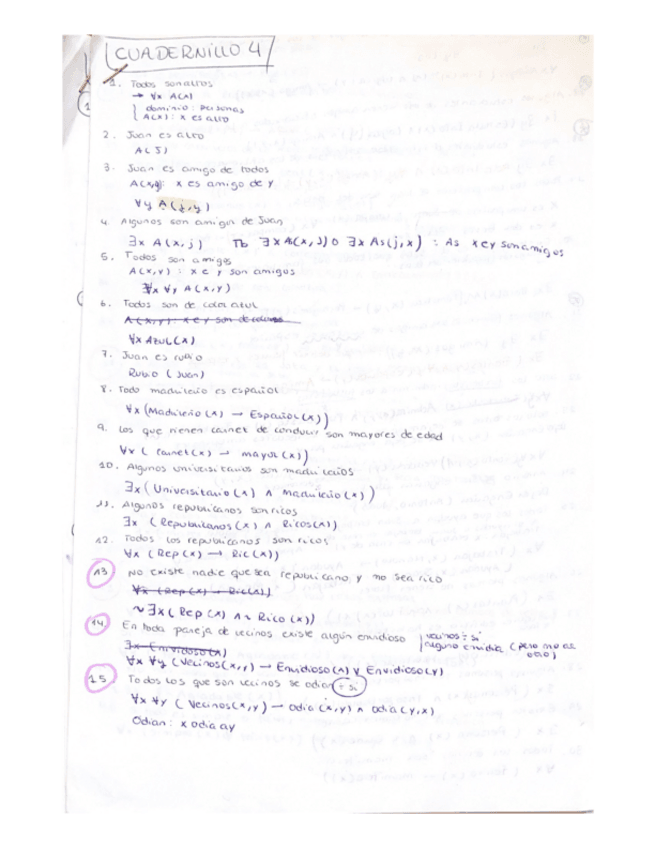 CUADERNILLO 4
1. Todos son altos
→ ∀x A(x)
dominio: personas
A(x): x es alto
2. Juan es alto
A(J)
3. Juan es amigo de todos
A(x,y): x es amigo de y
∀y A(j,y)
4. Algunos son amigos de Juan
∃x A(x,j) Tb ∃x As(x,j) o ∃x As(j,x) : As x e y son amigos
5. Todos son amigos
A(x,y) : x e y son amigos
∀x ∀y A(x,y)
6. Todos son de color azul
A(x,y): x e y son de colores
∀x Azul(x)
7. Juan es rubio
Rubio (Juan)
8. Todo madrileño es español
∀x (Madrileño(x) → Español(x))
9. Los que tienen carnet de conducir son mayores de edad
∀x ( carnet(x) → mayor(x))
10. Algunos universitarios son madrileños
∃x (Universitario(x) ∧ Madrileño(x))
11. Algunos republicanos son ricos
∃x (Republicanos(x) ∧ Ricos(x))
12. Todos los republicanos son ricos
∀x (Rep(x) → Ric(x))
13 No existe nadie que sea republicano, y no sea rico
∀x (Rep(x) → Ric(x))
~∃x (Rep(x) ∧ ~Rico(x))
14 En toda pareja de vecinos existe algún envidioso
vecinos: si
alguno envidia (pero no de
∃x Envidioso(x)
∀x ∀y (Vecinos(x,y) → Envidioso(x) ∨ Envidioso(y)
15 Todos los que son vecinos se odian + si
∀x ∀y ( Vecinos(x,y) → odia (x,y) ∧ odia(y,x)
Odian: x odia a y